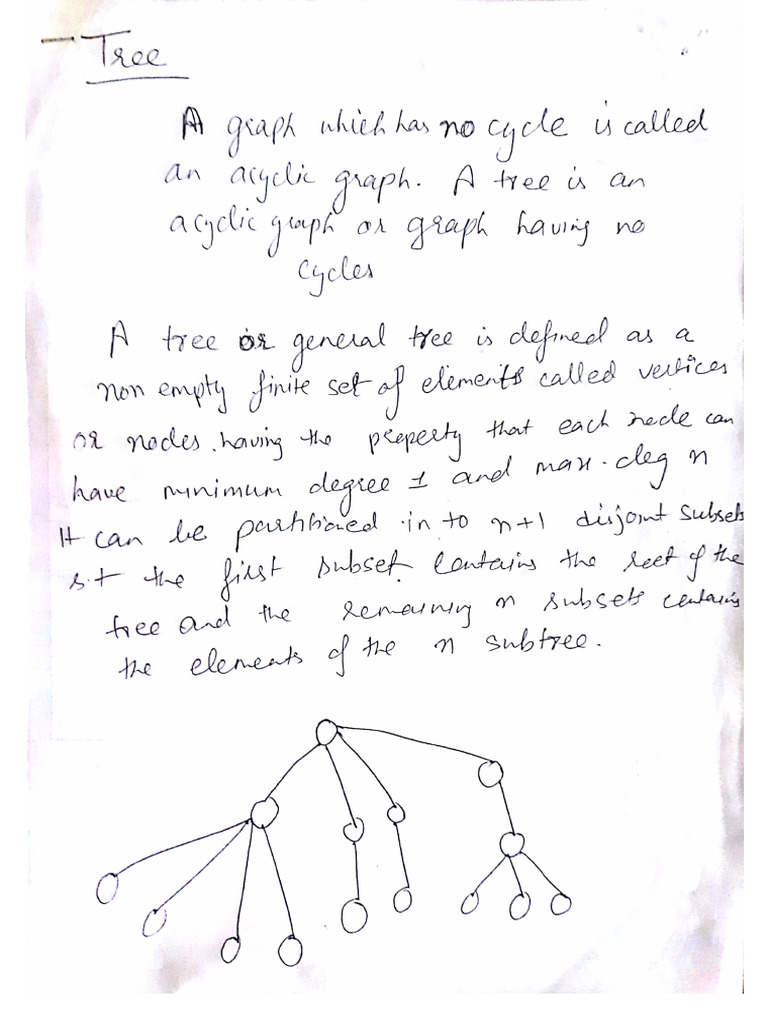 Tree
A graph which has no cycle is called
an acyclic graph. A tree is an
acyclic graph or graph having no
cycles
A tree or general tree is defined as a
non empty finite set of elements called vertices
or nodes having the property that each node can
have minimum degree 1 and max. deg n
It can be partitioned in to n+1 disjoint subsets
s.t the first subset contains the root of the
tree and the remaining n subsets contains
the elements of the n subtree.